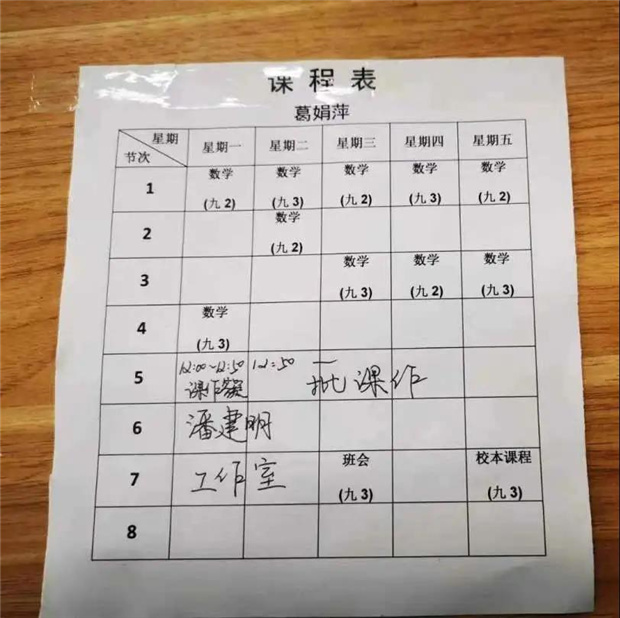 课程表
葛娟萍
星期
节次
星期一 星期二 星期三 星期四 星期五
1 数学 数学 数学 数学 数学
(九2) (九3) (九2) (九3) (九2)
2 数学
(九2)
3 数学 数学 数学
(九3) (九2) (九3)
4 数学
(九3)
5 12:00~12:50 12:50 — 批课作
课作
6 潘建明
7 工作室 班会 校本课程
(九3) (九3)
8